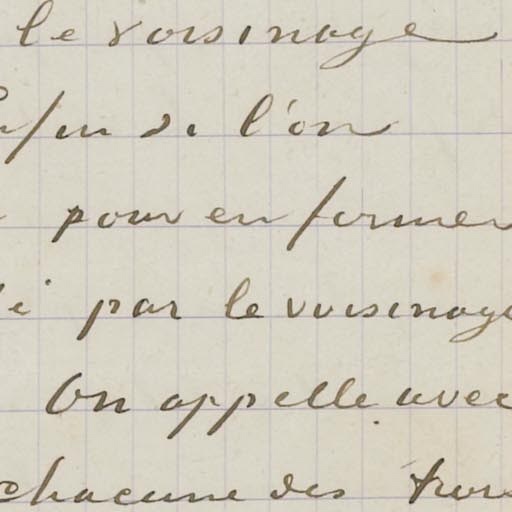 le voisinage
si de l'on
pour en former
par le voisinage
On appelle avec
chacune des trois